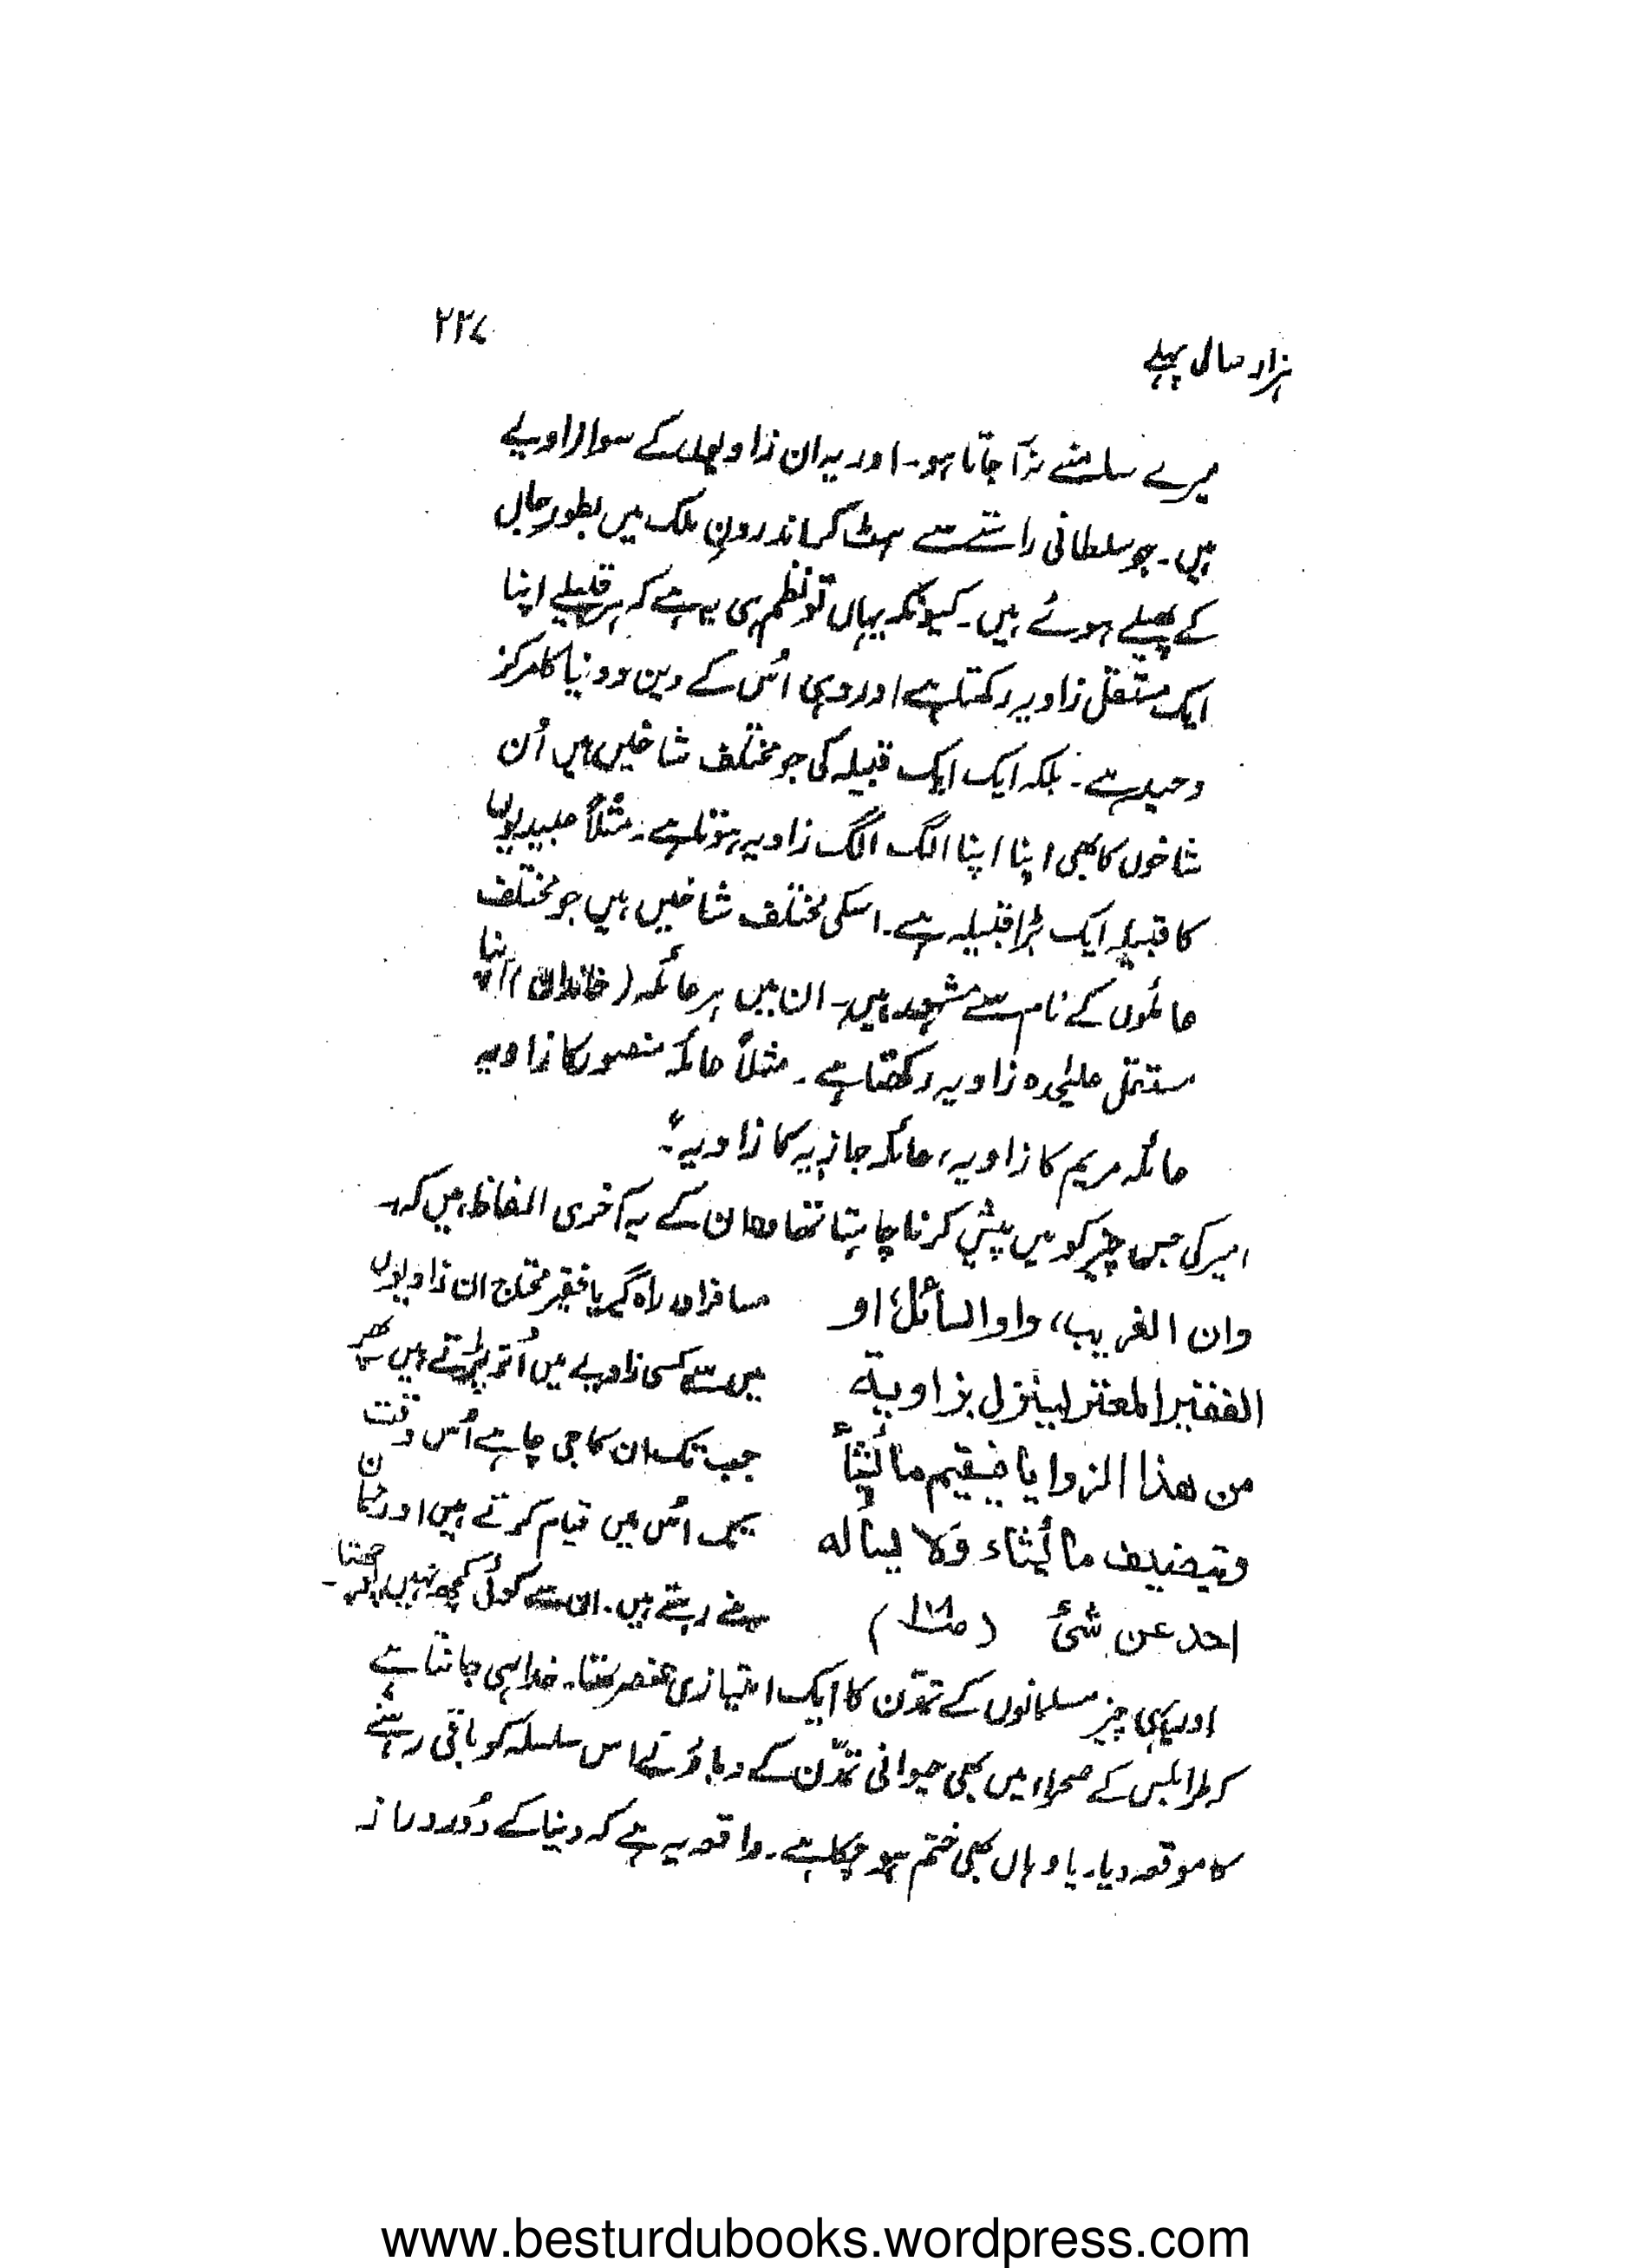 ہزار سال پہلے
۲۲۷
میرے سامنے نہ آ جاتا ہو۔ اور یہ ان زاویوں کے سوا زاویے
ہیں۔ جو سلطانی راستے سے ہٹ کر اندرونِ ملک میں بطور جال
کے پھیلے ہوئے ہیں۔ کیونکہ یہاں تو نظم ہی یہ ہے کہ ہر قبیلے اپنا
ایک مستقل زاویہ رکھتا ہے اور وہی اُس کے دین و دنیا کا مرکز
وحید ہے۔ بلکہ ایک ایک قبیلہ کی جو مختلف شاخیں ہیں اُن
شاخوں کا بھی اپنا اپنا الگ الگ زاویہ ہوتا ہے۔ مثلاً عبیدیوں
کا قبیلہ ایک بڑا قبیلہ ہے۔ اسکی مختلف شاخیں ہیں جو مختلف
عائلوں کے نام سے مشہور ہیں۔ ان میں ہر عائلہ (خاندان) اپنا
مستقل علیٰحدہ زاویہ رکھتا ہے۔ مثلاً عائلہ منصور کا زاویہ
عائلہ مریم کا زاویہ، عائلہ جازیہ کا زاویہ"۔
امیر کی جس چیز کو میں پیش کرنا چاہتا تھا وہ ان کے یہ آخری الفاظ ہیں کہ۔
وان الغریب، واو السائل، او
الفقیر المعتر لینزل بزاویة
من هذا الزوایا فیقیم ما یشاً
ویضیف ما یُشاء وَلا یسأله
احد عن شئ (ص۱۷۱)
مسافر اور راہ گیر یا فقیر محتاج ان زاویوں
میں سے کسی زاویے میں اُتر پڑتے ہیں پھر
جب تک ان کا جی چاہے اُس وقت
تک اُس میں قیام کرتے ہیں اور مہمان
بنے رہتے ہیں۔ ان سے کوئی کچھ نہیں پوچھتا۔
اور یہی چیز مسلمانوں کے تمدّن کا ایک امتیازی عنصر تھا۔ خدا ہی جانتا ہے
کہ طرابلس کے صحراء میں بھی حیوانی تمدّن کے دباؤ نے اس سلسلہ کو باقی رہنے
کا موقعہ دیا۔ یا وہاں بھی ختم ہو چکا ہے۔ واقعہ یہ ہے کہ دنیا کے دُور دراز
www.besturdubooks.wordpress.com